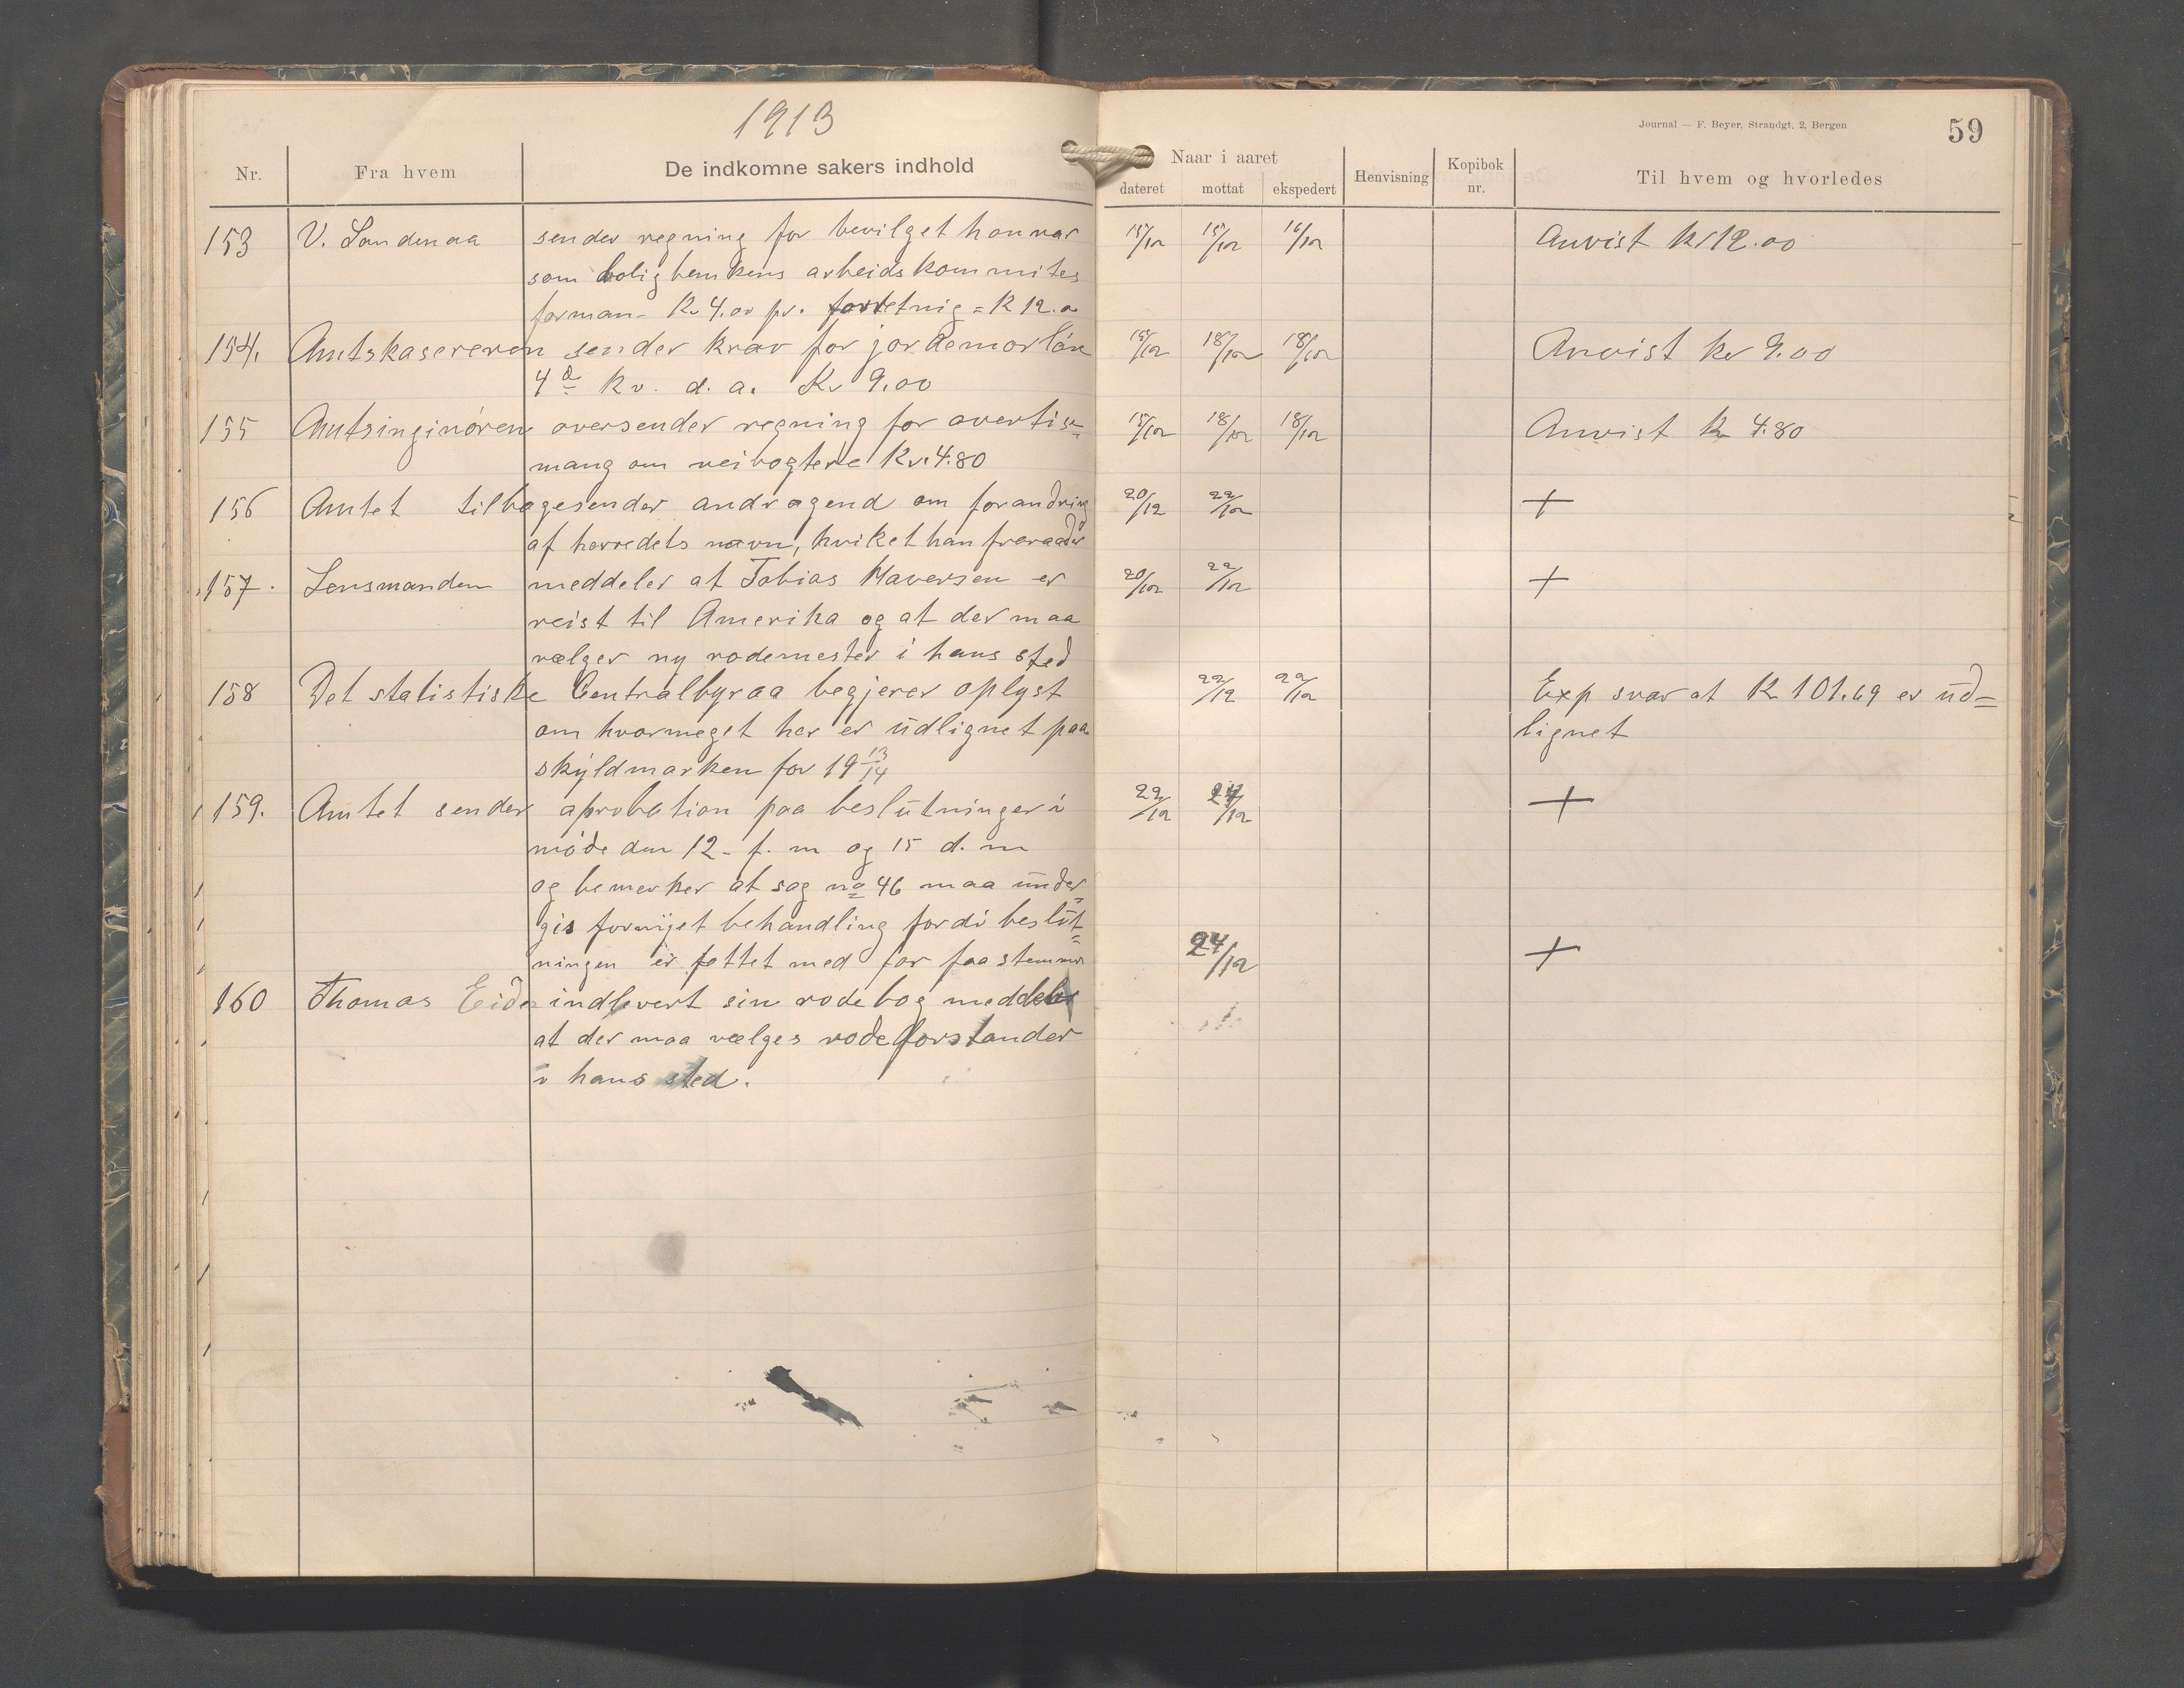 1913
Journal — F. Beyer, Strandgt. 2, Bergen
59
Nr.
Fra hvem
De indkomne sakers indhold
Naar i aaret
dateret
mottat
ekspedert
Henvisning
Kopibok nr.
Til hvem og hvorledes
153 V. Sandenaa sender regning for bevilget honnar 15/12 15/12 16/12 Anvist Kr 12.00
som boligbenkens arbeidskommites
forman - Kr 4.00 pr. forretnig = K 12.00
154. Amtskasereren sender krav for jordemorlön 15/12 18/12 18/12 Anvist Kr 9.00
4de Kv. d. a. Kr 9.00
155 Amtsinginören oversender regning for avertise= 15/12 18/12 18/12 Anvist Kr 4.80
mang om veivogtere Kr. 4.80
156 Amtet tilbagesender andragend om forandring 20/12 22/12 +
af herredets navn, hvilket han fraraader
157. Lensmanden meddeler at Tobias Haversen er 20/12 22/12 +
reist til Amerika og at der maa
vælger ny rodemester i hans sted
158 Det statistiske Centralbyraa begjerer oplyst 22/12 22/12 Exp svar at Kr 101.69 er ud=
om hvormeget her er udlignet paa lignet
skyldmarken for 19 13/14
159. Amtet sender aprobation paa beslutninger i 22/12 24/12 +
möde den 12 - f. m og 15 d. m
og bemerker at sag no 46 maa under=
gis fornyet behandling fordi beslut=
ningen er fattet med for faa stemmer
160 Thomas Eide indlevert sin rodebog meddeler 24/12 +
at der maa vælges rodeforstander
i hans sted.